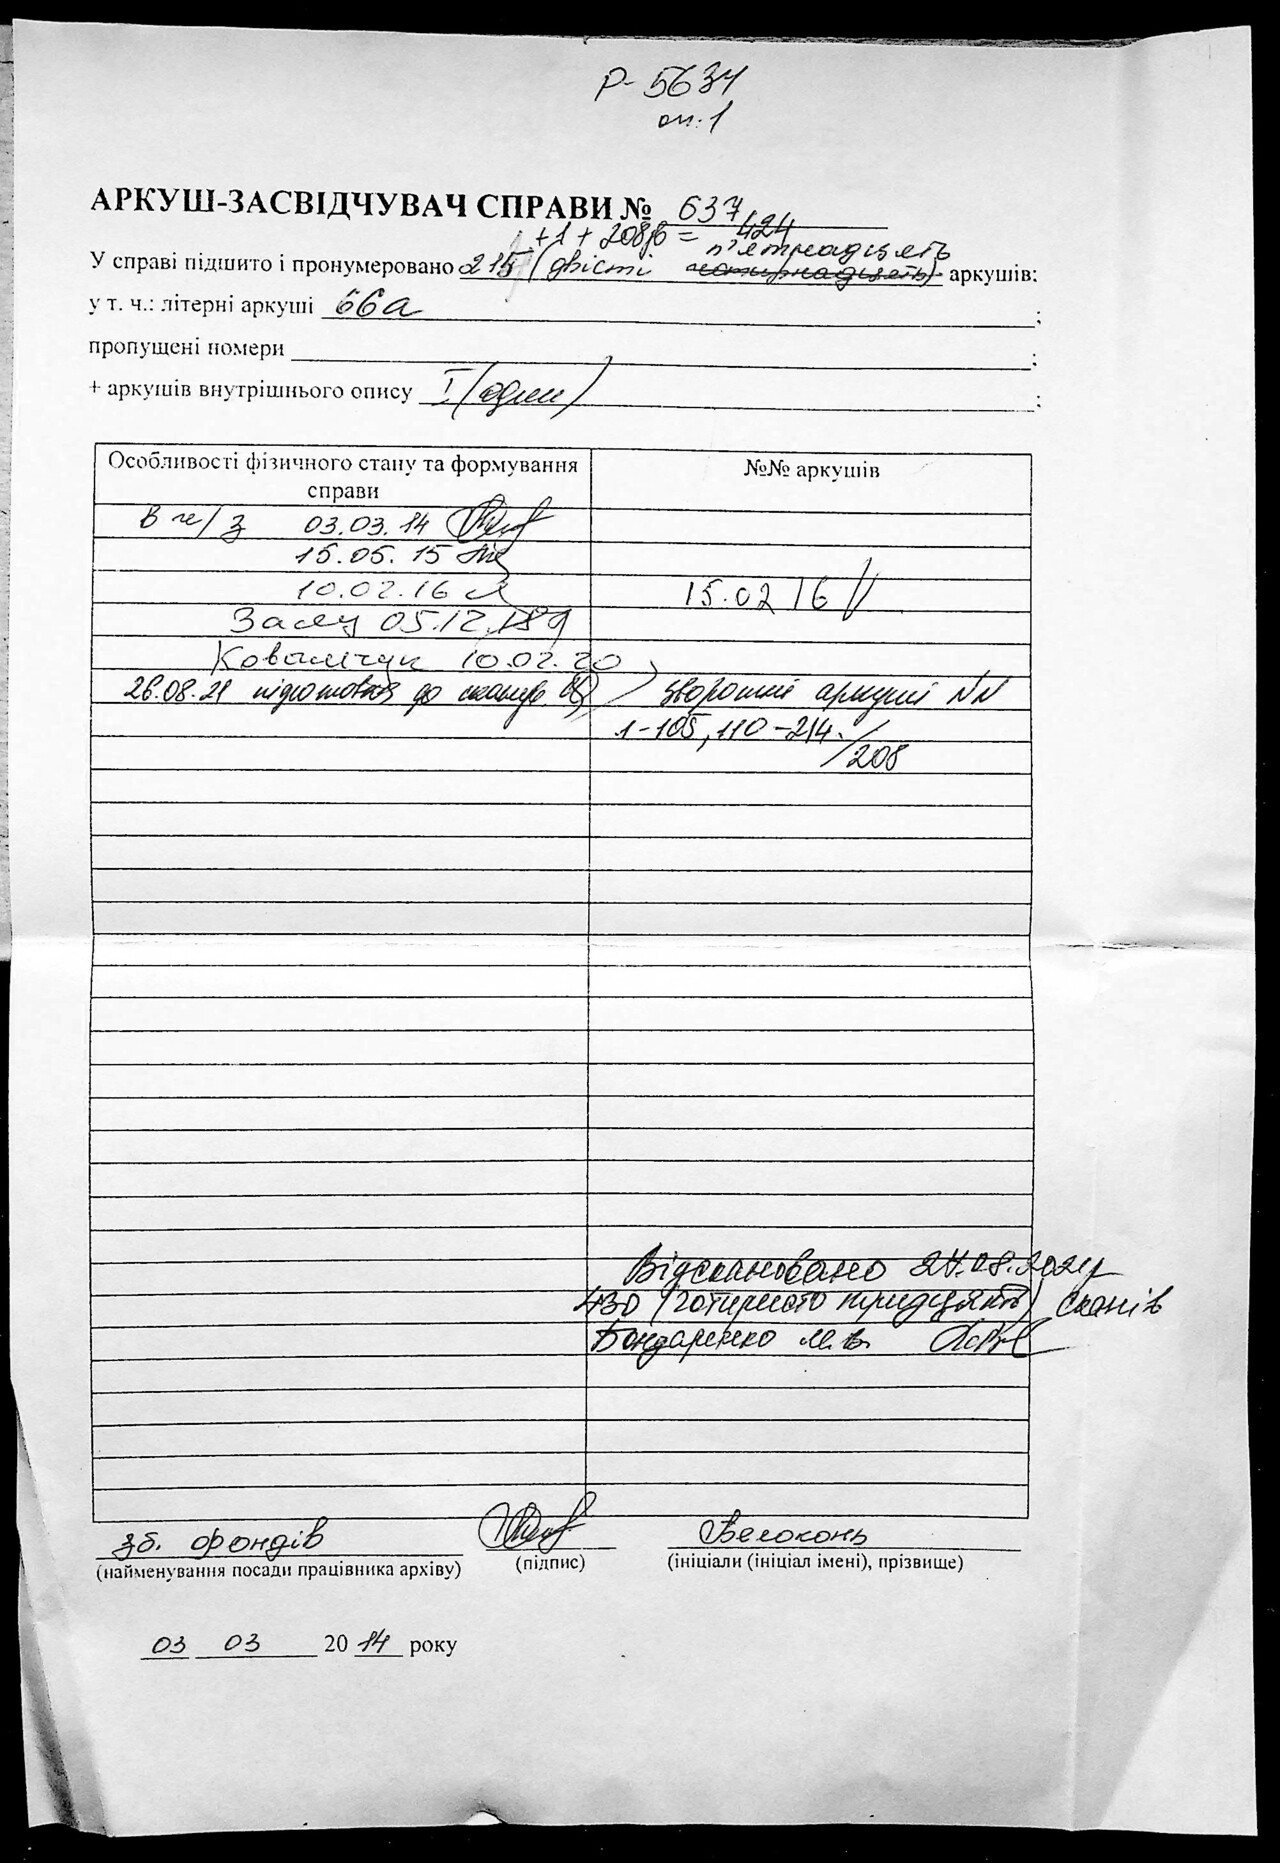 Р-5634
оп.1
АРКУШ-ЗАСВІДЧУВАЧ СПРАВИ № 637
+1 + 208зв = 424
п'ятнадцять
У справі підшито і пронумеровано 215 (двісті чотирнадцять) аркушів:
у т. ч.: літерні аркуші 66а ;
пропущені номери ;
+ аркушів внутрішнього опису 1 (один) ;
Особливості фізичного стану та формування справи
№№ аркушів
В ч/з 03.03.14
15.05.15
10.02.16
15.02 16
05.12.18
Ковальчук 10.02.20
26.08.21 підготовка до сканув. зворотні аркуші NN
1-105, 110-214.
/208
Відскановано 27.08.2021
430 (чотиристо тридцять) сканів
Бондаренко М.В.
зб. фондів
Белоконь
(найменування посади працівника архіву)
(підпис)
(ініціали (ініціал імені), прізвище)
03 03 2014 року